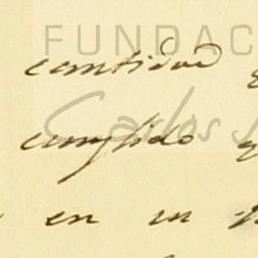 FUNDAC
cantidad
Carlos
cumplido
en un